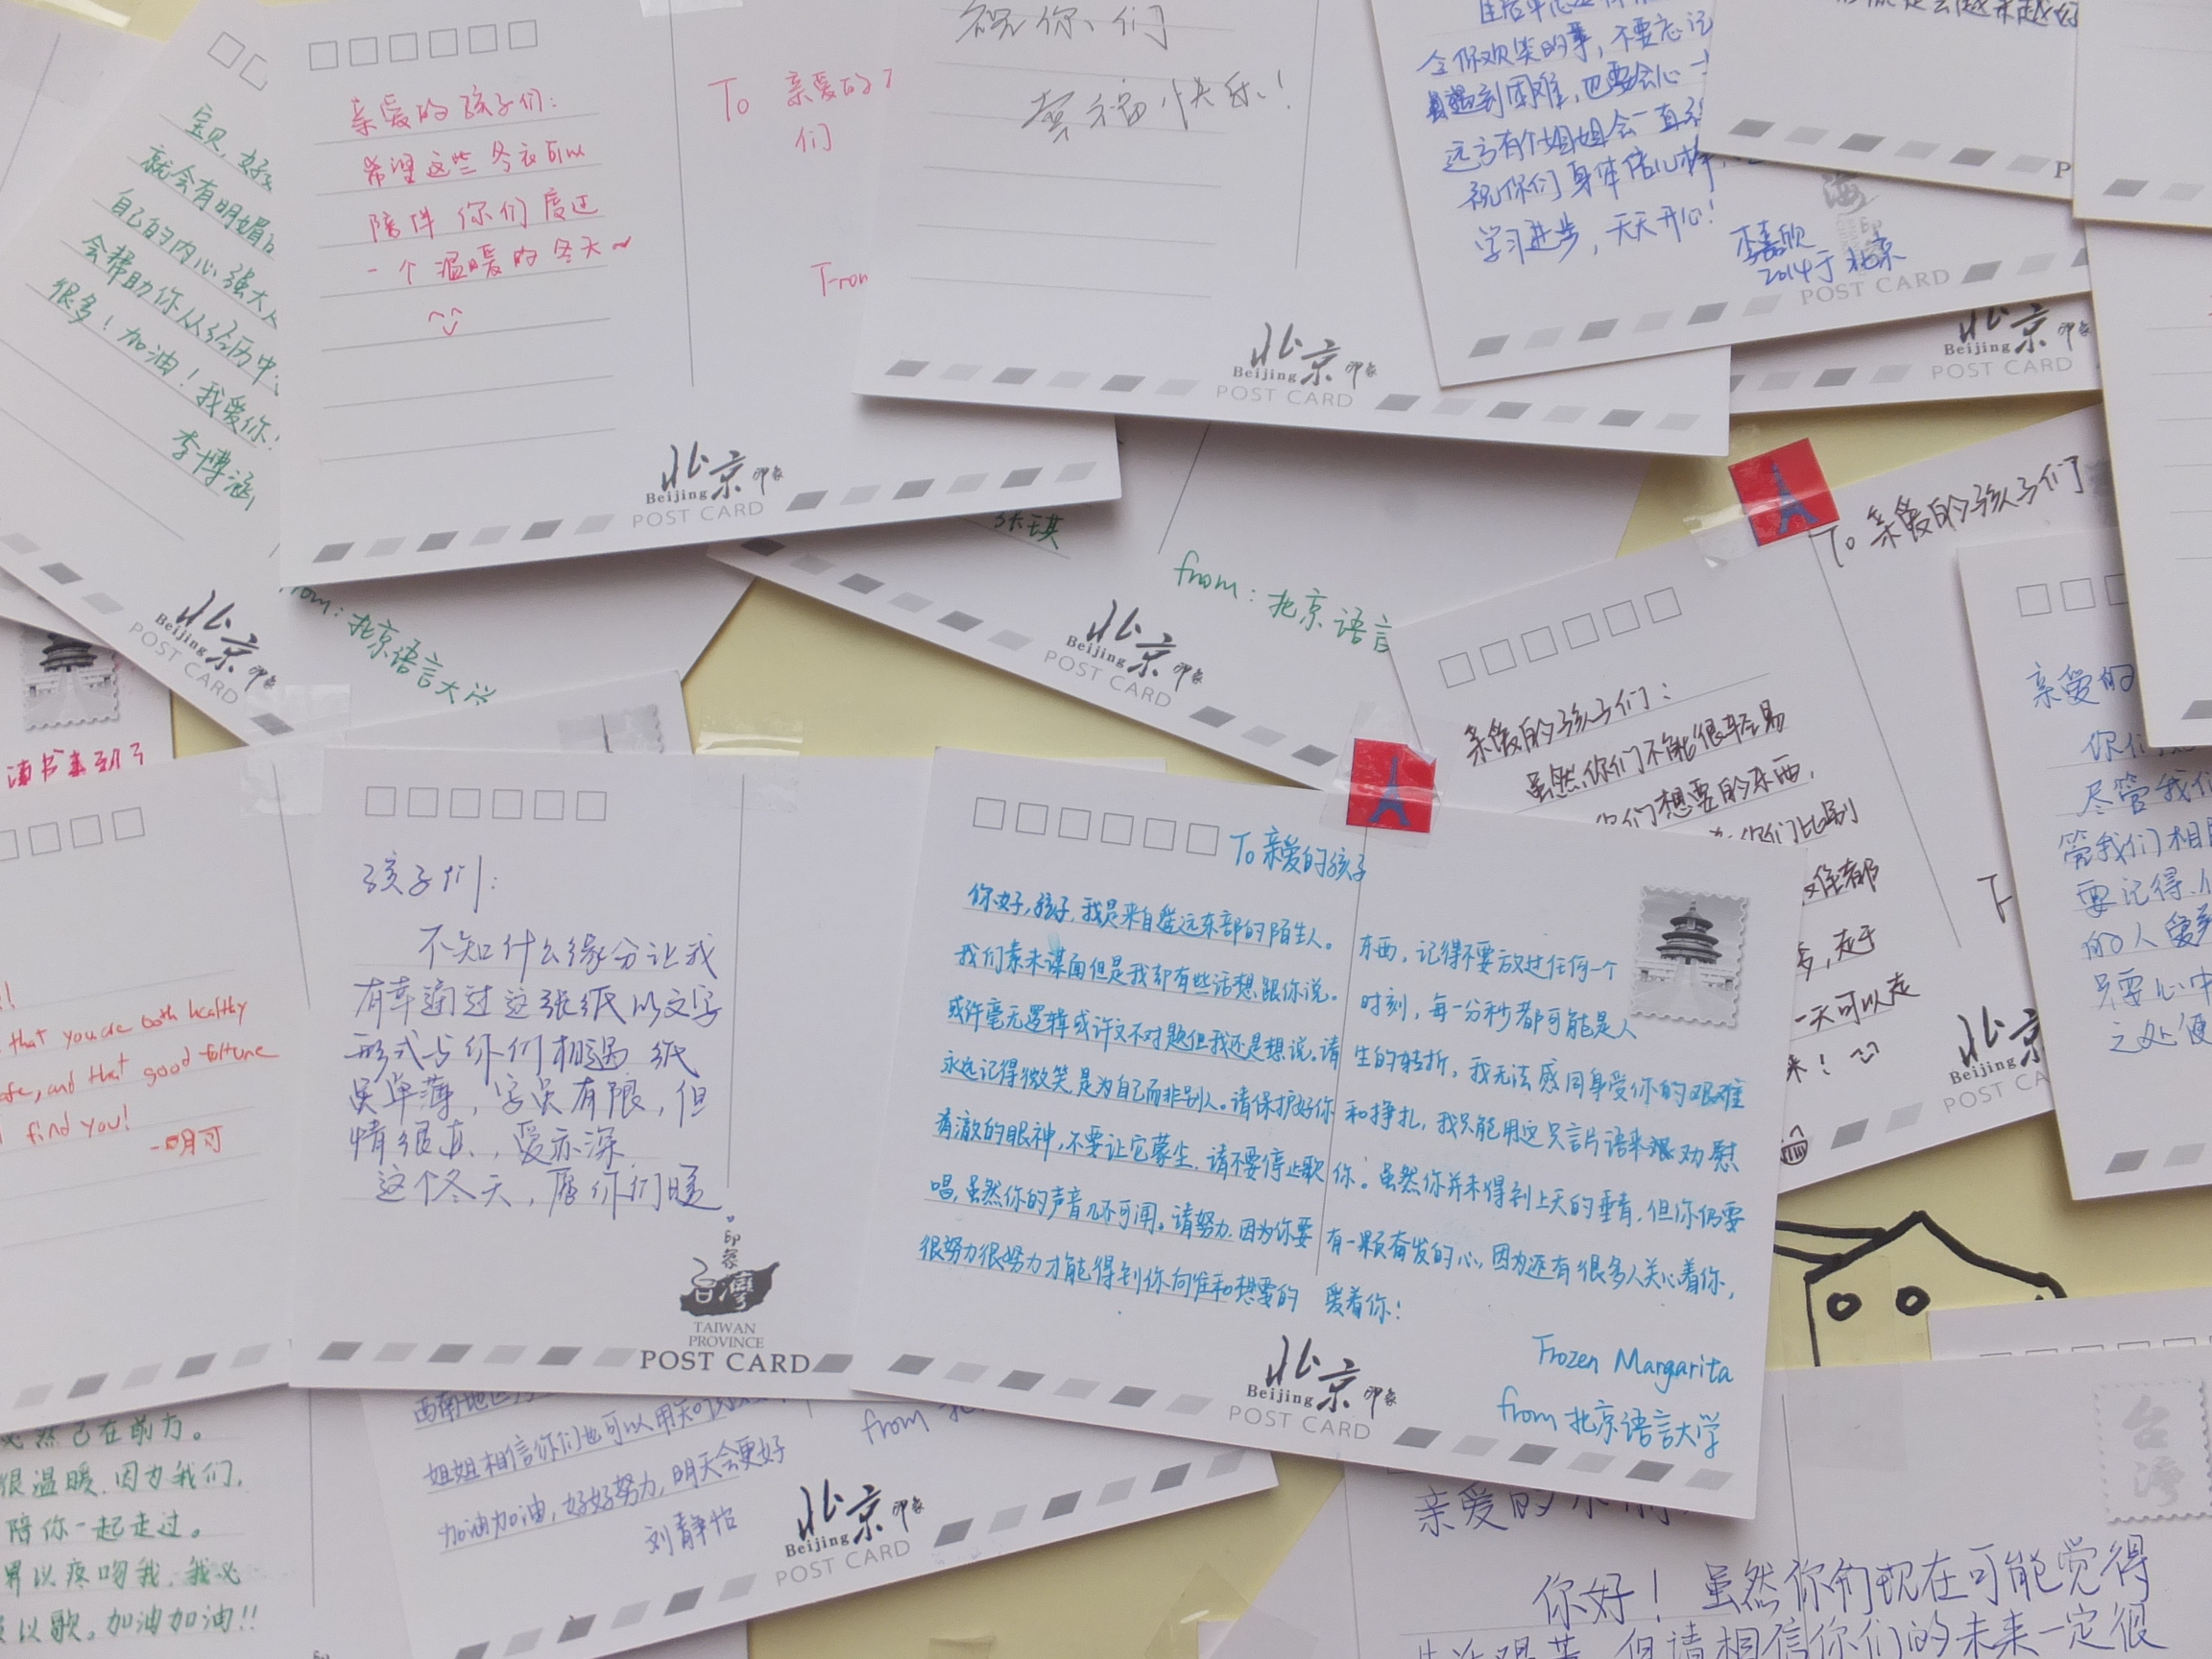 宝贝,好好
就会有明媚的
自己的内心强大
会帮助你从经历中
很多!加油!我爱你!
李博涵
Beijing 北京 印象
POST CARD
亲爱的孩子们:
希望这些冬衣可以
陪伴你们度过
一个温暖的冬天~
To 亲爱的
们
From
Beijing 北京 印象
POST CARD
祝你们
幸福快乐!
Beijing 北京 印象
POST CARD
令你欢笑的事,不要忘记
遇到困难,也要会心一
远方有个姐姐会一直
祝你们身体倍儿棒,
学习进步,天天开心!
李嘉欣
2014于北京
POST CARD
Beijing 北京 印象
POST CARD
会越来越好
from:北京语言大学
张琪
from:北京语言
Beijing 北京 印象
POST CARD
To 亲爱的孩子们
亲爱的孩子们:
虽然你们不能很轻易
你们想要的东西,
你们比别
一天可以走
来!
Beijing 北京
POST CARD
亲爱的
你们
尽管我们
管我们相
要记得,
的人爱
只要心中
之处便
读书
that you are both healthy
safe, and that good fortune
find you!
孩子们:
不知什么缘分让我
有幸通过这张纸以文字
形式与你们相遇 纸
虽单薄,字虽有限,但
情很真,爱亦深
这个冬天,愿你们暖
印象
台湾
TAIWAN
PROVINCE
POST CARD
To 亲爱的孩子
你好,孩子,我是来自遥远东部的陌生人。
我们素未谋面但是我却有些话想跟你说。
或许毫无逻辑或许文不对题但我还是想说。请
永远记得微笑,是为自己而非别人。请保护好你
清澈的眼神,不要让它蒙尘。请不要停止歌
唱,虽然你的声音几不可闻。请努力,因为你要
很努力很努力才能得到你向往和想要的
东西,记得不要放过任何一个
时刻,每一分秒都可能是人
生的转折,我无法感同身受你的艰难
和挣扎,我只能用这只言片语来劝慰
你:虽然你并未得到上天的垂青,但你仍要
有一颗奋发的心,因为还有很多人关心着你,
爱着你!
Frozen Margarita
from 北京语言大学
Beijing 北京 印象
POST CARD
已在前方。
很温暖,因为我们,
陪你一起走过。
界以疼吻我,我必
以歌。加油加油!!
姐姐相信你们也可以用知识
加油加油,好好努力,明天会更好
刘静怡
from 北
Beijing 北京 印象
POST CARD
台湾
亲爱的
你好!虽然你们现在可能觉得
但请相信你们的未来一定很